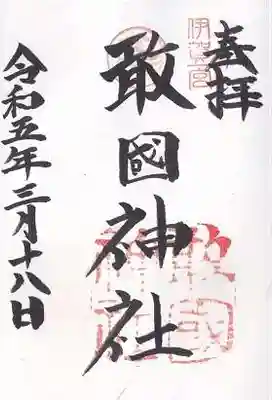 奉拝
伊賀一宮
敢國神社
敢國神社
令和五年三月十八日